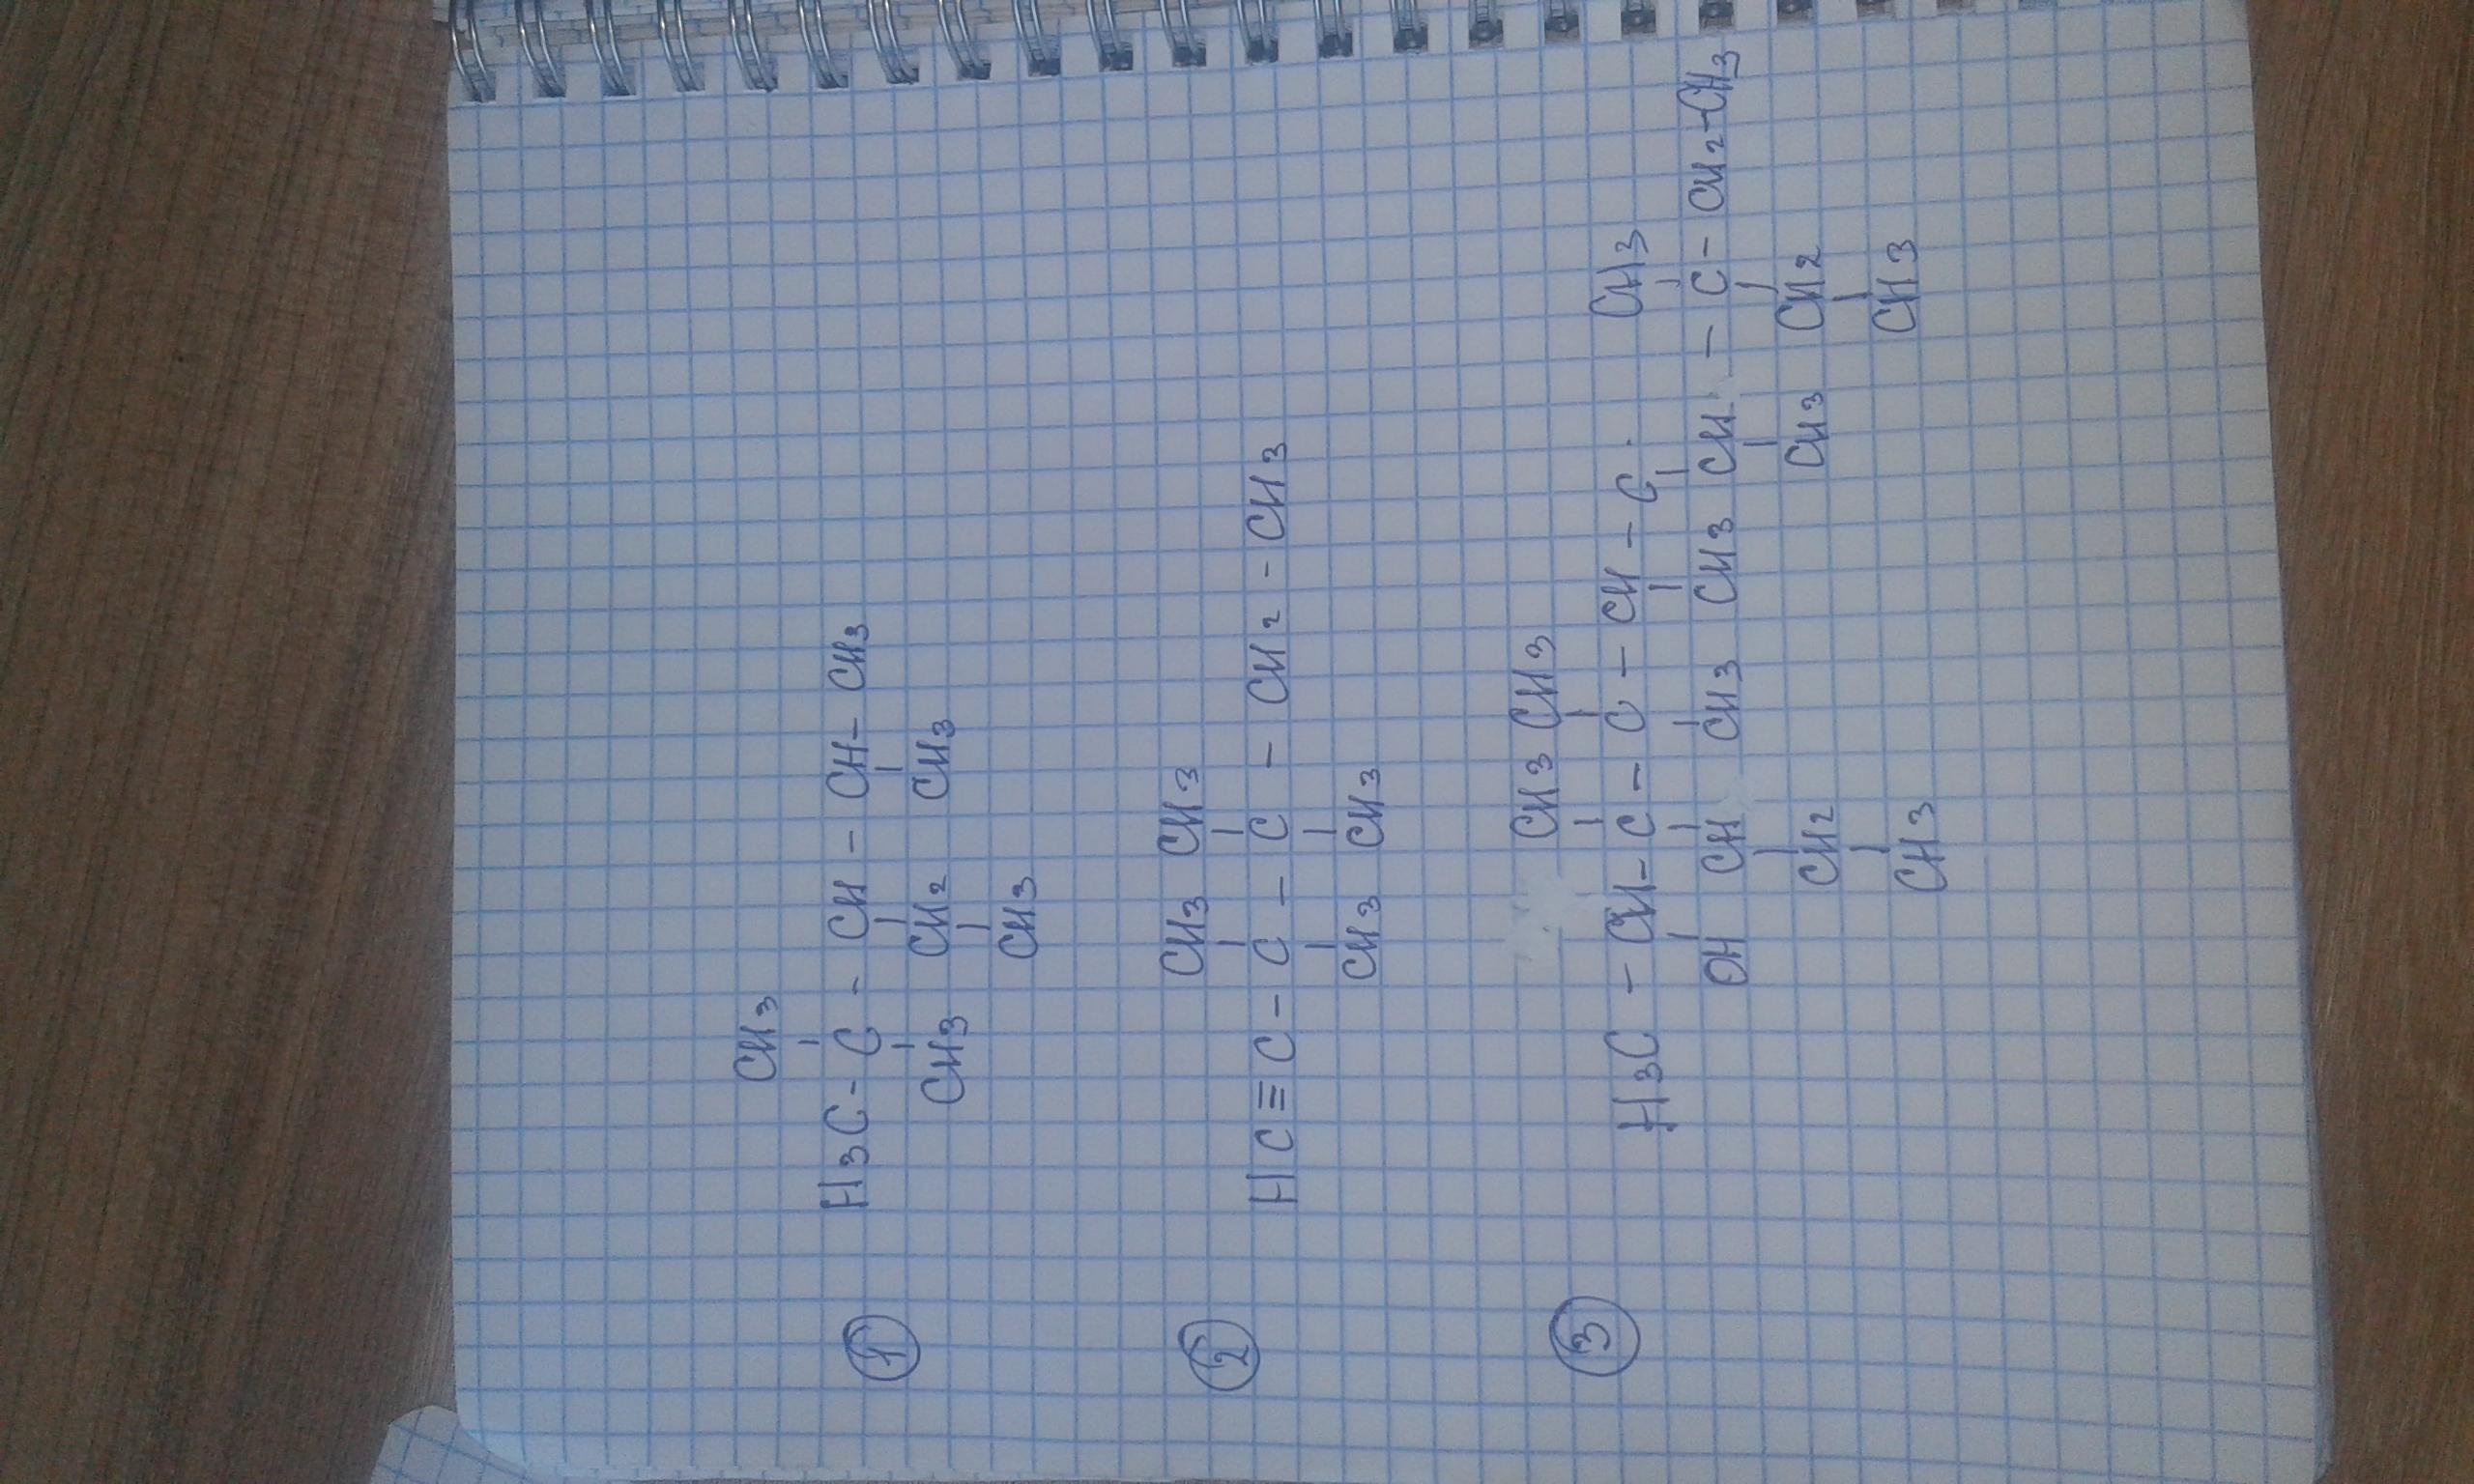 CH3
① H3C - C - CH - CH - CH3
CH3 CH2 CH3
CH3
CH3 CH3
② HC ≡ C - C - C - CH2 - CH3
CH3 CH3
CH3 CH3
③ H3C - CH - C - C - CH - C CH3
OH CH CH3 CH3 CH - C - CH2 - CH3
CH2 CH3 CH2
CH3 CH3